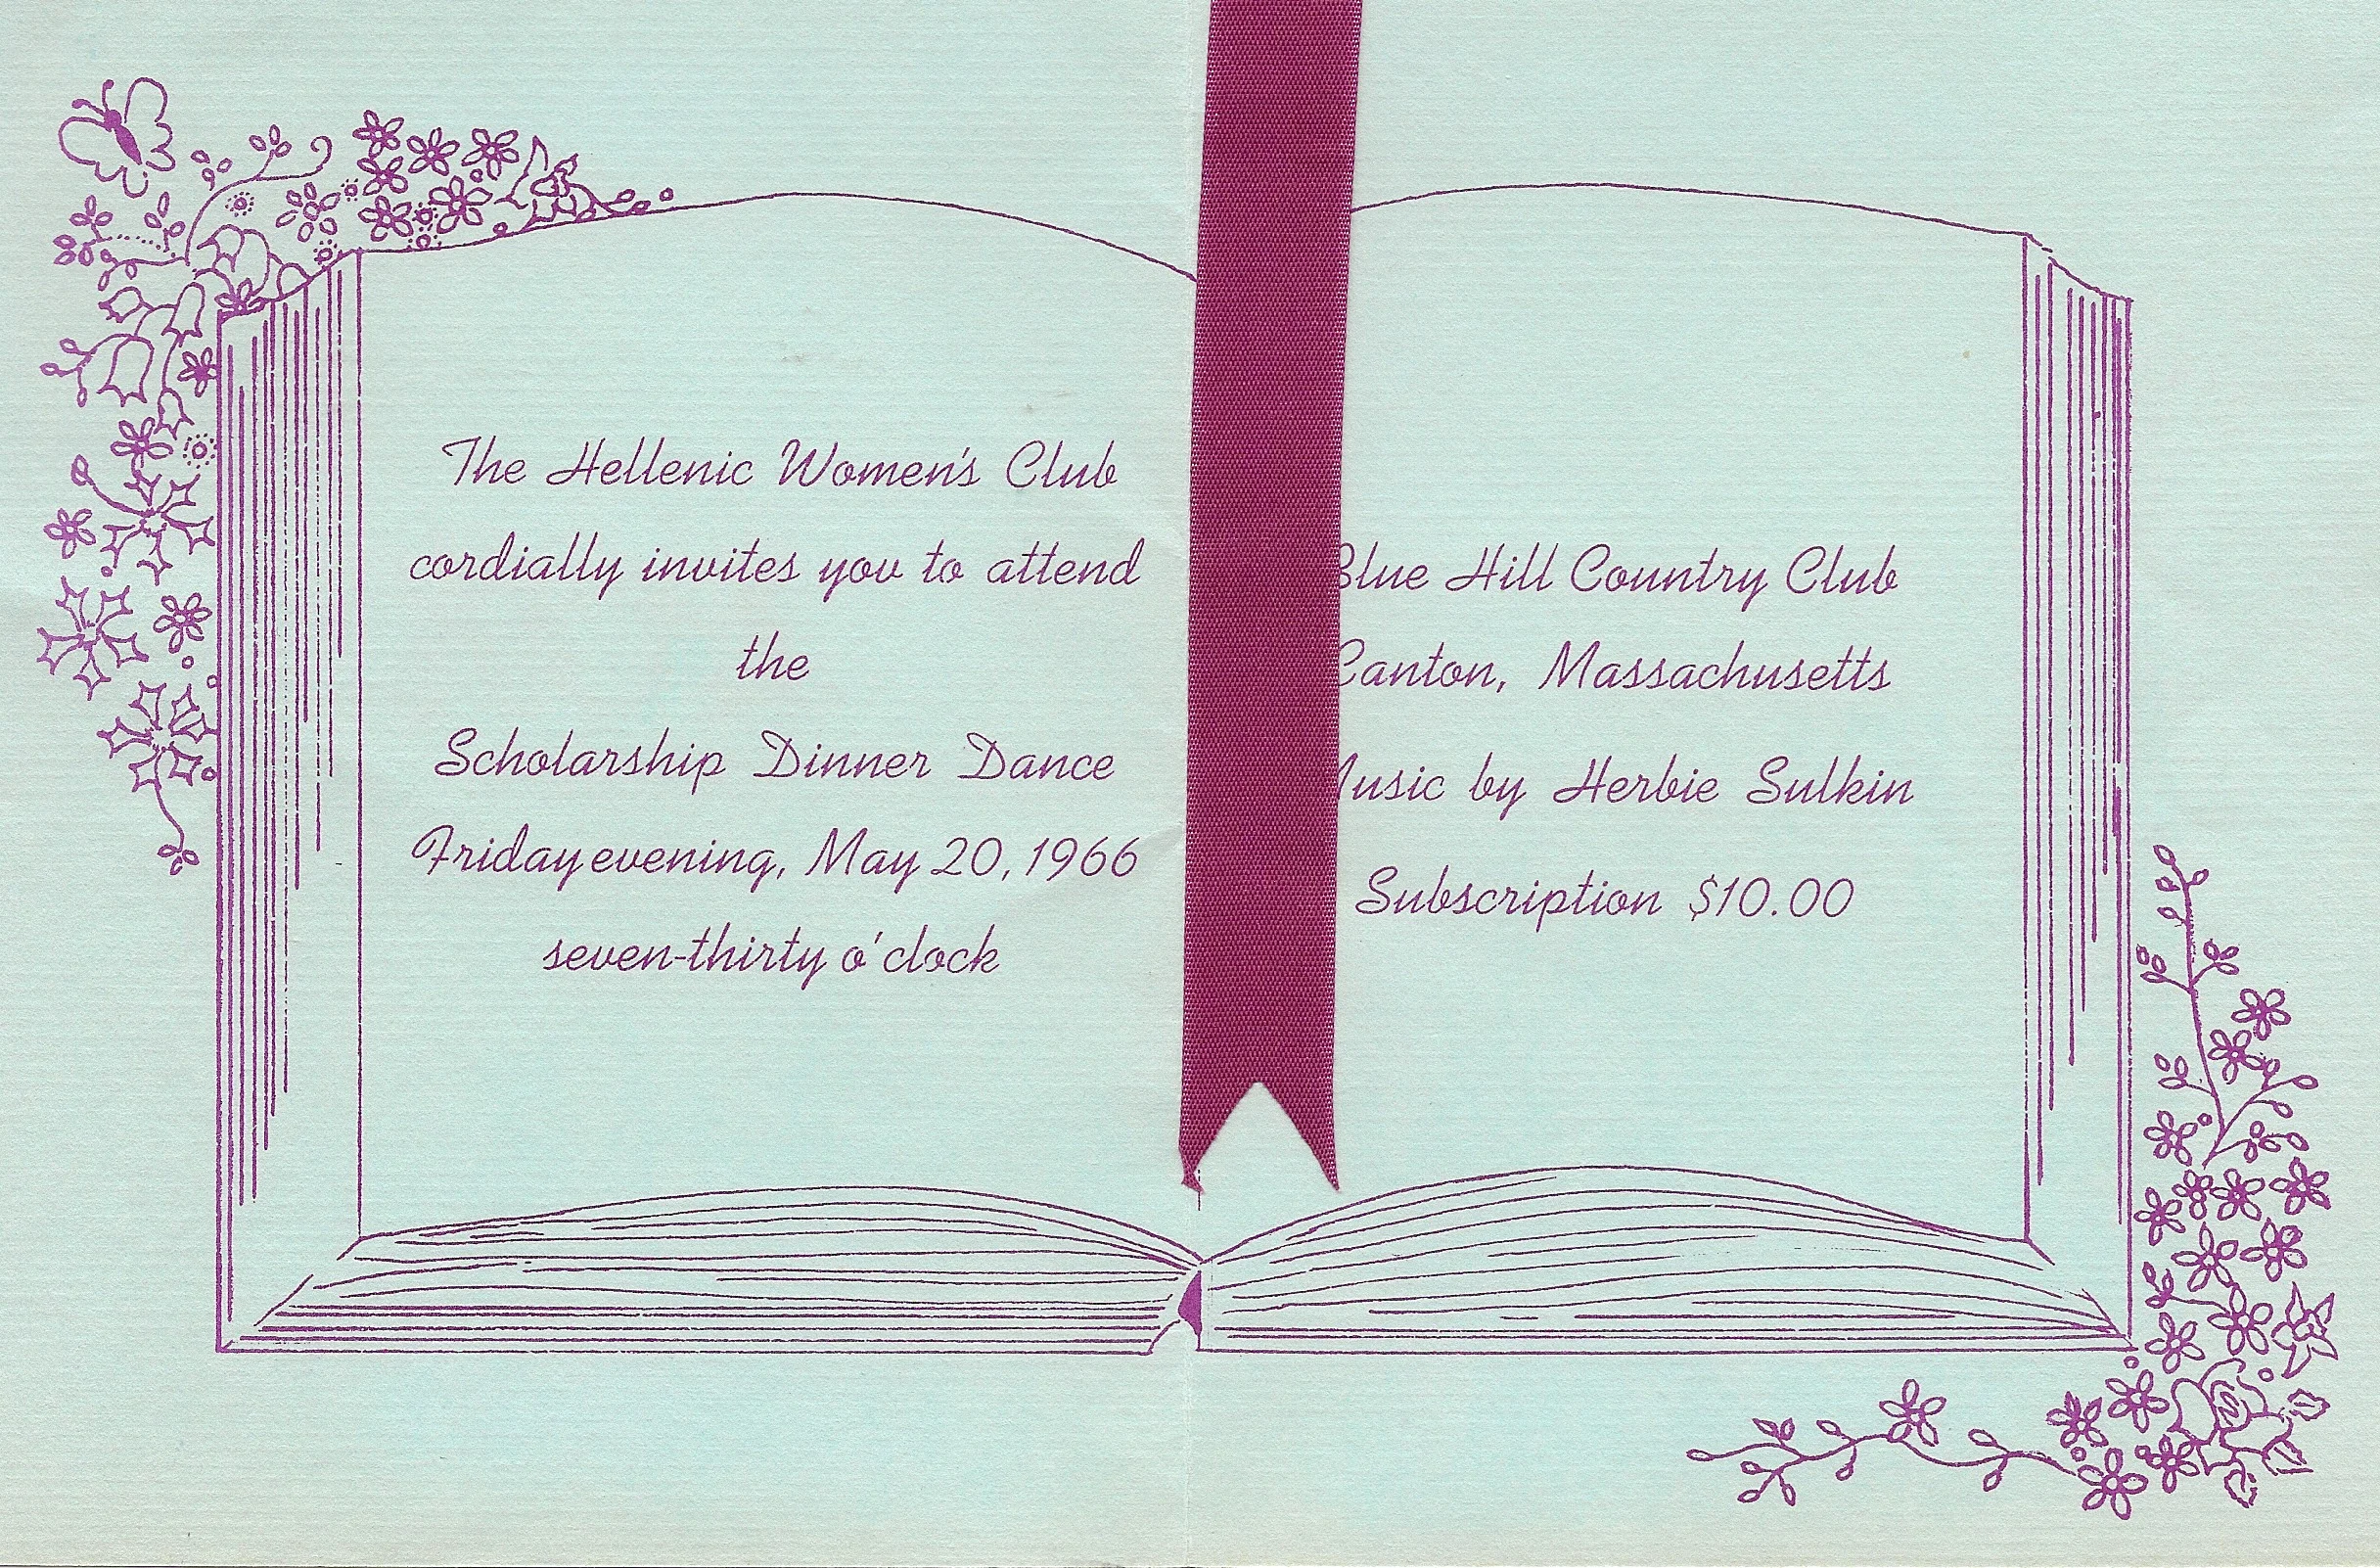 The Hellenic Women's Club
cordially invites you to attend
the
Scholarship Dinner Dance
Friday evening, May 20, 1966
seven-thirty o'clock
Blue Hill Country Club
Canton, Massachusetts
Music by Herbie Sulkin
Subscription $10.00